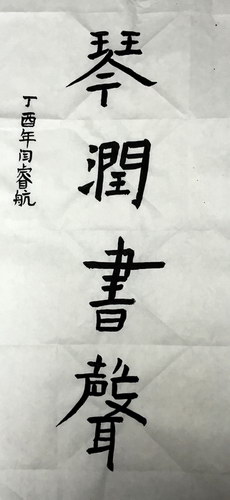 琴潤書聲
丁酉年闫睿航